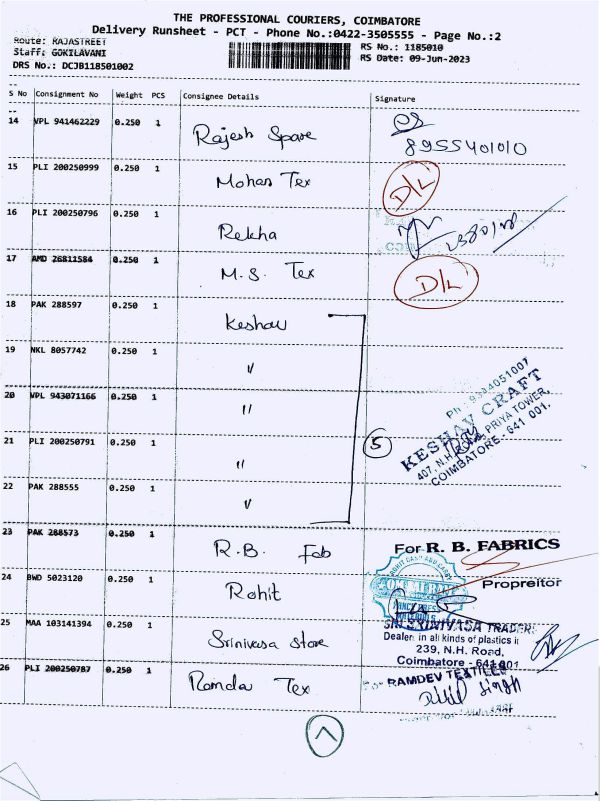 THE PROFESSIONAL COURIERS, COIMBATORE
Delivery Runsheet - PCT - Phone No.:0422-3505555 - Page No.:2
Route: RAJASTREET
RS No.: 1185010
Staff: GOKILAVANI
RS Date: 09-Jun-2023
DRS No.: DCJB118501002
S No Consignment No Weight PCS Consignee Details Signature
14 VPL 941462229 0.250 1 Rajesh Spare
8955401010
15 PLI 200250999 0.250 1 Mohan Tex D/L
16 PLI 200250796 0.250 1 Rekha
17 AMD 26811584 0.250 1 M.S. Tex D/L
18 PAK 288597 0.250 1 Keshav
19 NKL 8057742 0.250 1 "
20 VPL 943071166 0.250 1 "
21 PLI 200250791 0.250 1 " 5
22 PAK 288555 0.250 1 "
KESHAV CRAFT
407, N.H. ROAD, PRIYA TOWER,
COIMBATORE - 641 001.
23 PAK 288573 0.250 1 R.B. Fab For R. B. FABRICS
24 BWD 5023120 0.250 1 Rohit Propreitor
25 MAA 103141394 0.250 1 Srinivasa Store
SRI SRINIVASA TRADER
Dealer in all kinds of plastics i
239, N.H. Road,
Coimbatore - 641 001
26 PLI 200250787 0.250 1 Ramdav Tex
For RAMDEV TEXTILE
Singh